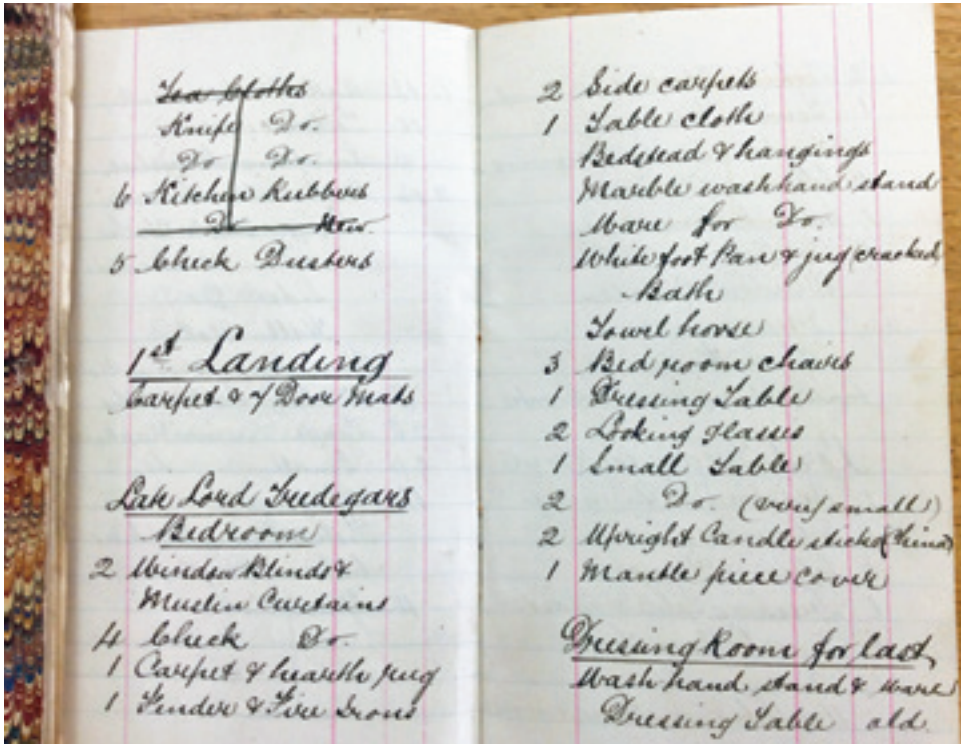 Tea Cloths
Knife Do.
Do Do.
6 Kitchen Rubbers
Do New
5 Check Dusters
1st Landing
Carpet & 7 Door Mats
Late Lord Tredegars
Bedroom
2 Window Blinds &
Muslin Curtains
4 Check Do.
1 Carpet & hearth rug
1 Fender & Fire Irons
2 Side carpets
1 Table cloth
Bedstead & hangings
Marble washhand stand
Ware for Do.
White foot Pan & jug (cracked)
Bath
Towel horse
3 Bed room chairs
1 Dressing Table
2 Looking glasses
1 Small Table
2 Do. (very small)
2 Upright Candle sticks (China)
1 Mantle piece cover
Dressing Room for last
Wash hand stand & ware
Dressing Table old.